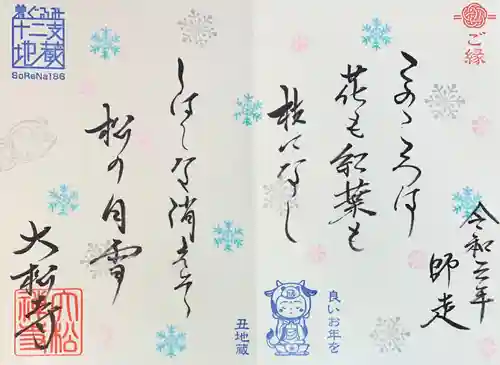 ご縁
令和二年
師走
このころは
花も紅葉も
枝になし
良いお年を
丑地蔵
しはしな消えそ
松の白雪
大松寺
着ぐるみ
十二支
地蔵
SoReNa186